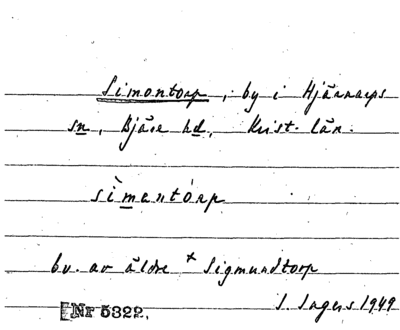 Simontorp, by i Hjärnarps
sn, Bjäre hd, Krist. län.
sìmantórp
bv. av äldre + Sigmundtorp
Nr 5322. S. Ingers 1949